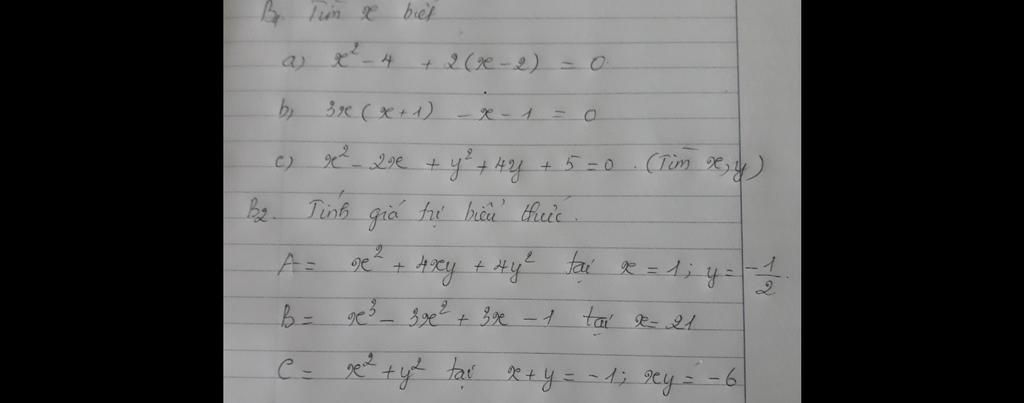 B1 Tìm x biết
a) x² - 4 + 2(x - 2) = 0
b, 3x(x+1) - x - 1 = 0
c) x² - 2x + y² + 4y + 5 = 0. (Tìm x, y)
B2. Tính giá trị biểu thức.
A = x² + 4xy + 4y² tại x = 1; y = -1/2.
B = x³ - 3x² + 3x - 1 tại x = 21
C = x² + y² tại x + y = -1; xy = -6